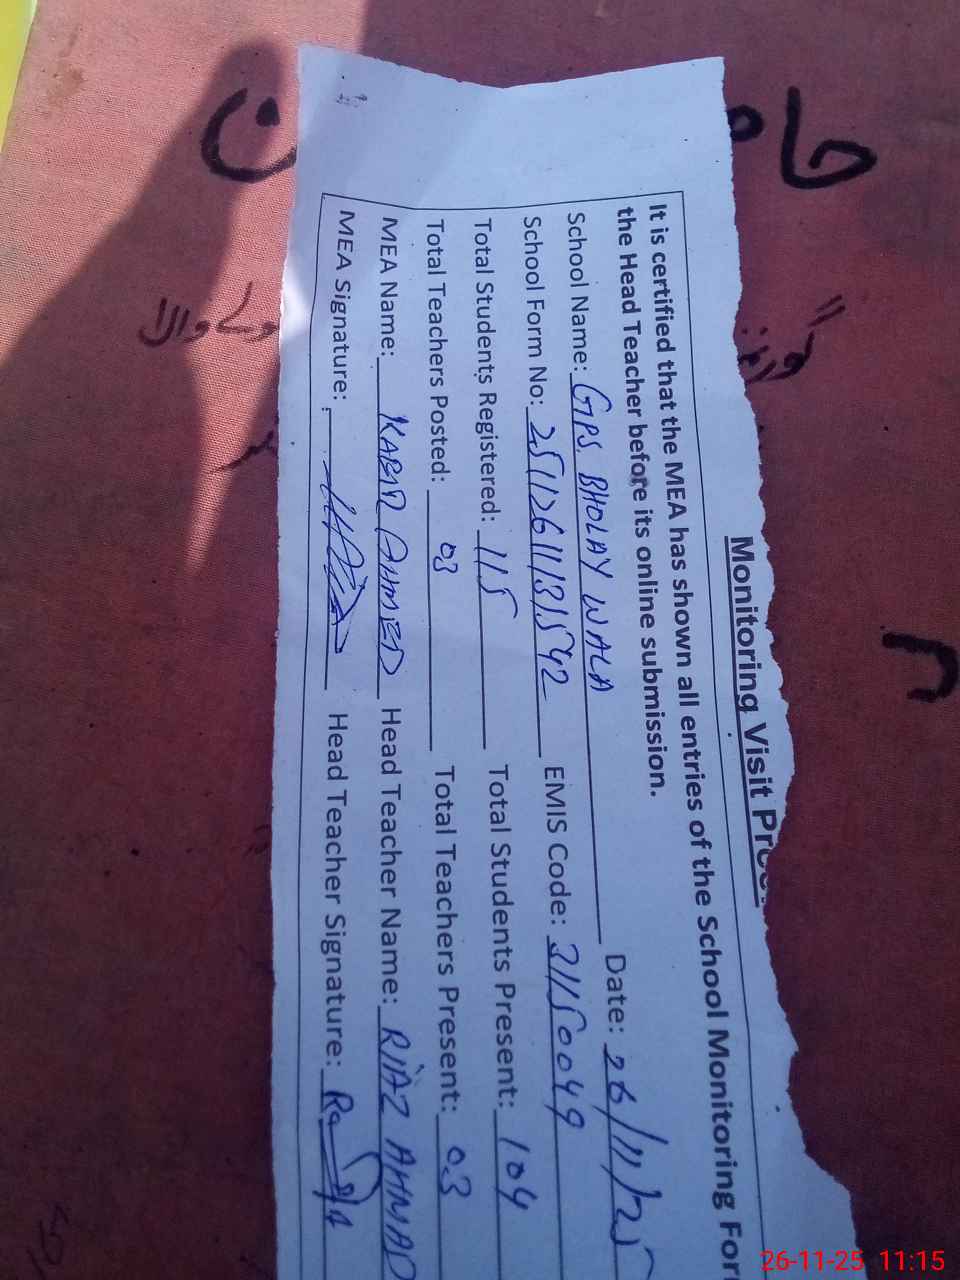 Monitoring Visit Proo
It is certified that the MEA has shown all entries of the School Monitoring Form
the Head Teacher before its online submission.
School Name: GPS. BHOLAY WALA Date: 26/11/25
School Form No: 2511261131542 EMIS Code: 31150049
Total Students Registered: 115 Total Students Present: 104
Total Teachers Posted: 03 Total Teachers Present: 03
MEA Name: KABIR AHMED Head Teacher Name: RIAZ AHMAD
MEA Signature: Head Teacher Signature:
26-11-25 11:15